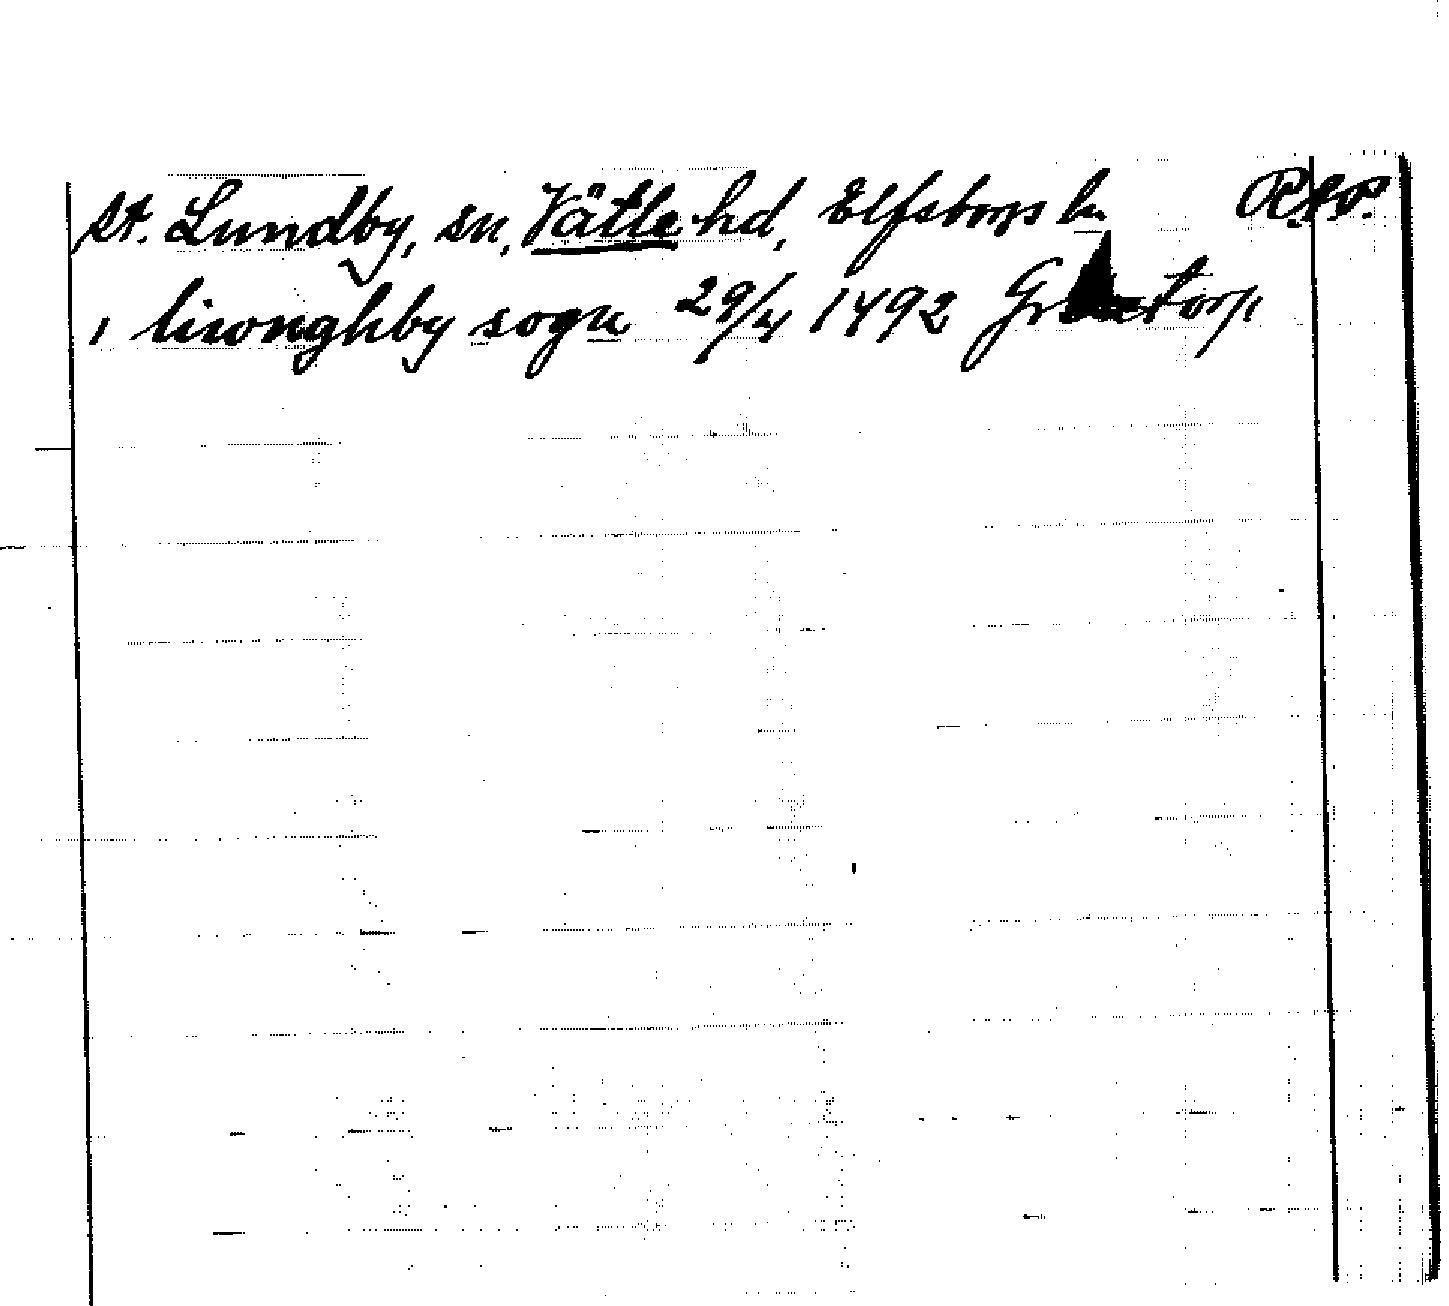 St. Lundby, sn, Vätle hd, Elfsborgs ln
i liwonghby sogn 29/4 1492